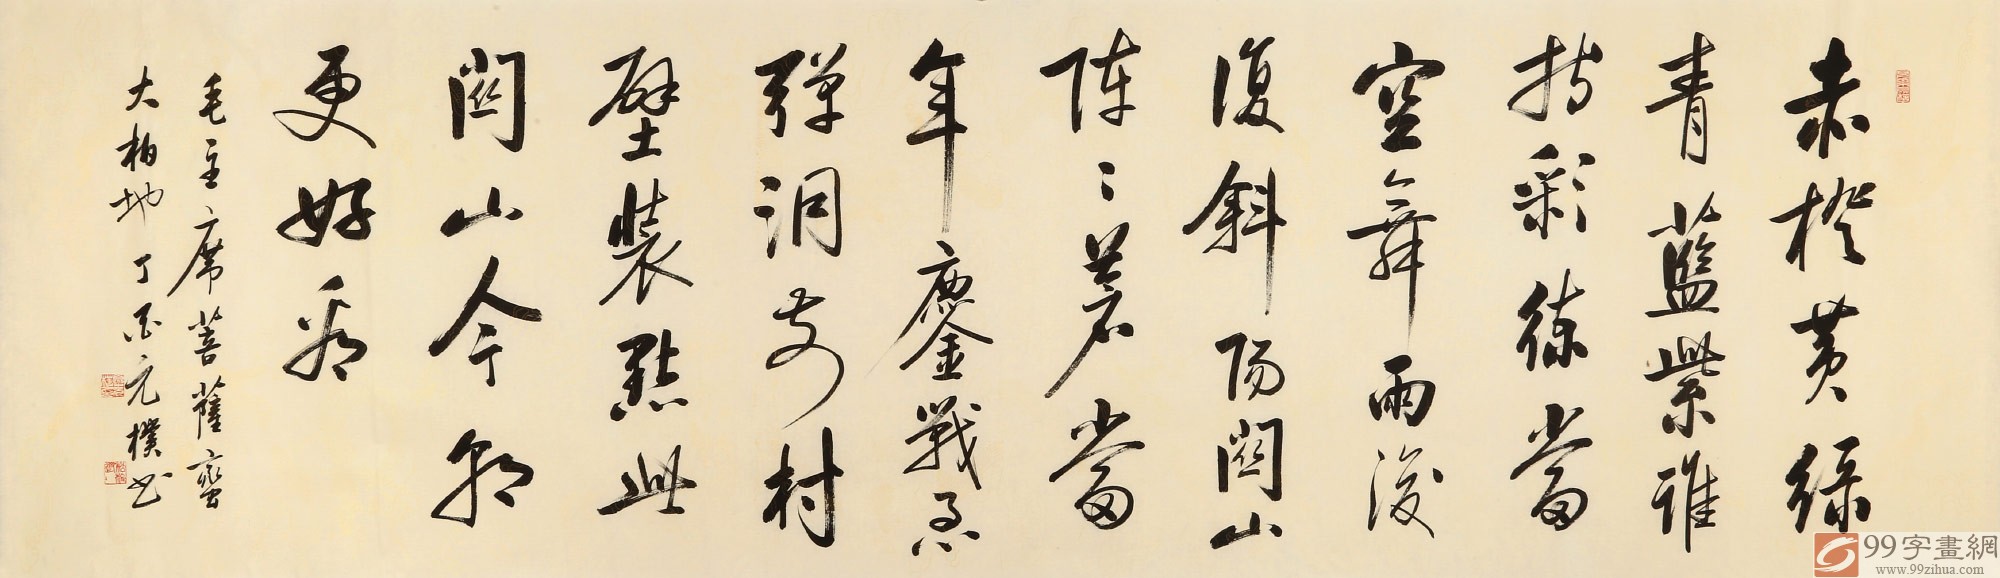 赤橙黄綠
青藍紫誰
持彩練當
空舞雨後
復斜陽關山
陣々蒼當
年鏖戰急
彈洞前村
壁裝點此
關山今朝
更好看
毛主席菩薩蠻
大柏地 丁酉元樸书
99字畫網
www.99zihua.com